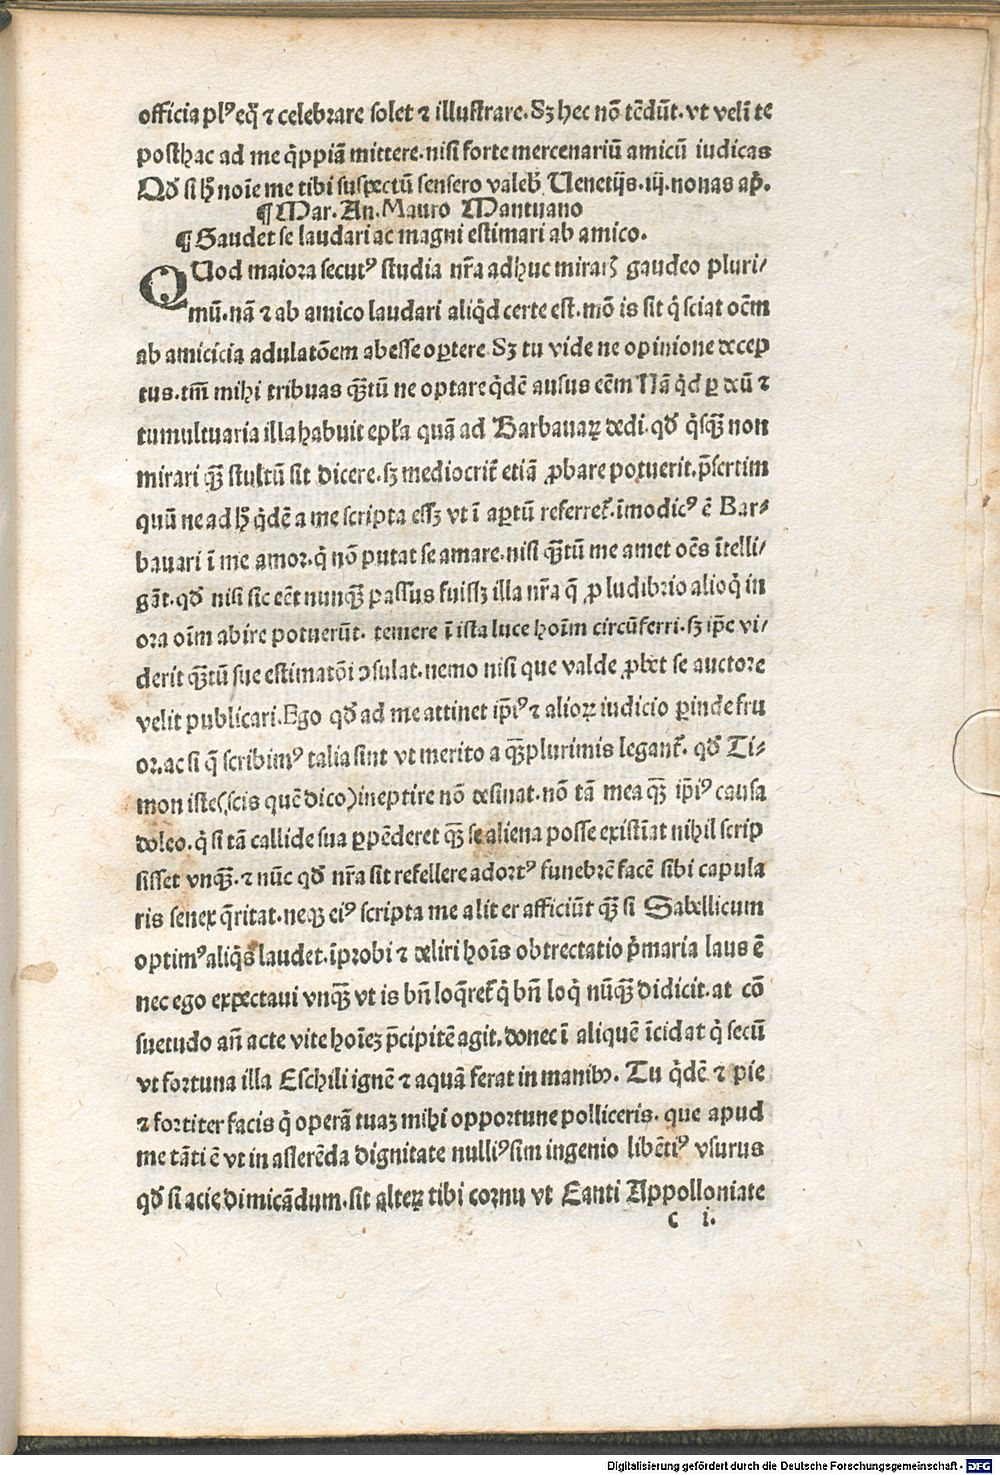 officia plꝰ eq̈ ⁊ celebrare solet ⁊ illustrare. Sꝫ hec nō tēdūt. vt veli᷑ te
posthac ad me q̇ppiā mittere. nisi forte mercenariū amicū iudicas
Qd̕ si ħ noīe me tibi suspectū sensero valeb̕ Uenetijs. iij. nonas ap̕.
¶ Mar. An. Mauro Mantuano
¶ Gaudet se laudari ac magni estimari ab amico.
QUod maiora secutꝰ studia nr̄a adhuc mirar̕ gaudeo pluri/
mū. nā ⁊ ab amico laudari aliq̇d certe est. mō is sit q̇ sciat oēm
ab amicicia adulatōem abesse oꝑtere Sꝫ tu vide ne opinione decep
tus. tm̄ mihi tribuas q̄ꝫtū ne optare q̇dē ausus eēm Nā q̇d ꝑ deū ⁊
tumultuaria illa habuit epl̕a quā ad Barbauaꝝ dedi. qd̕ q̇sq̄ꝫ non
mirari q̄ꝫ stultū sit dicere. sꝫ mediocrit̕ etiā ꝓbare potuerit. p̄sertim
quū ne ad ħ q̇dē a me scripta essꝫ vt ī aꝑtū referret᷑. īmodicꝰ ē Bar⸗
bauari ī me amor. q̇ nō putat se amare. nisi q̄ꝫtū me amet oēs ītelli/
gāt. qd̕ nisi sic eēt nunq̄ꝫ passus fuissꝫ illa nr̄a q̄ ꝓ ludibrio alioq̇ in
ora oīm abire potuerūt. temere ī ista luce hoīm circūferri. sꝫ ip̄e vi/
derit q̄ꝫtū sue estimatōi ꝯsulat. nemo nisi que valde ꝓbet se auctore
velit publicari. Ego qd̕ ad me attinet ip̄iꝰ ⁊ alioꝝ iudicio ꝑinde fru
or. ac si q̄ scribimꝰ talia sint vt merito a q̄ꝫplurimis legant᷑. qd̕ Ti⸗
mon iste (scis quē dico) ineptire nō desinat. nō tā mea q̄ꝫ ip̄iꝰ causa
doleo. q̇ si tā callide sua ꝑpēderet q̄ꝫ se aliena posse existiāt nihil scrip
sisset vnq̄ꝫ. ⁊ nūc qd̕ nr̄a sit refellere adortꝰ funebrē facē sibi capula
ris senex q̄ritat. neqꝫ eiꝰ scripta me aliter afficiūt q̄ꝫ si Sabellicum
optimꝰ aliq̇s laudet. īprobi ⁊ deliri hoīs obtrectatio ṗmaria laus ē
nec ego expectaui vnq̄ꝫ vt is bn̄ loq̄ret᷑ q̇ bn̄ loq̇ nūq̄ꝫ didicit. at cō
suetudo an̄ acte vite hoīeꝫ p̄cipitē agit. donec ī aliquē īcidat q̇ secū
vt fortuna illa Eschili ignē ⁊ aquā ferat in manibꝫ. Tu q̇dē ⁊ pie
⁊ fortiter facis q̇ operā tuaꝫ mihi opportune polliceris. que apud
me tāti ē vt in asserēda dignitate nulliꝰ sim ingenio libētiꝰ vsurus
qd̕ si acie dimicādum. sit alteꝝ tibi cornu vt Eanti Appolloniate
c i.
Digitalisierung gefördert durch die Deutsche Forschungsgemeinschaft - DFG